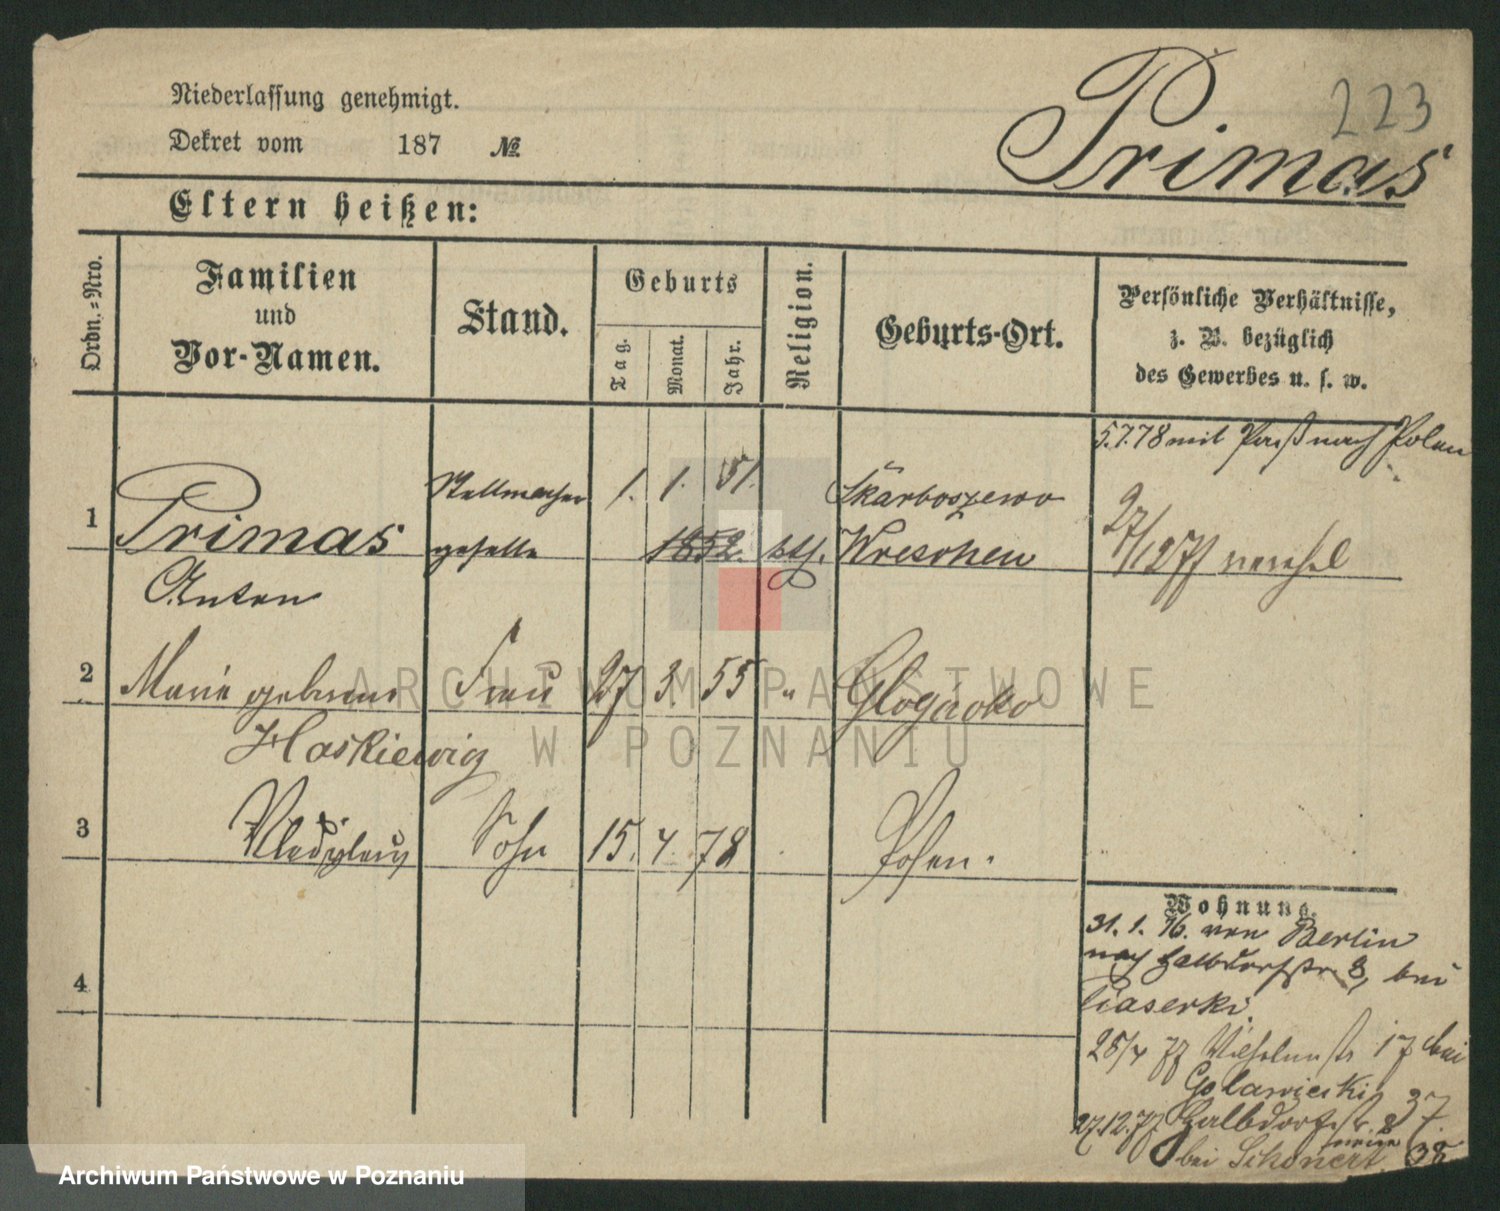 223
Primas
Niederlassung genehmigt.
Dekret vom 187 №
Eltern heißen:
Ordn.=Nro.
Familien
und
Vor-Namen.
Stand.
Geburts
Tag.
Monat.
Jahr.
Religion.
Geburts-Ort.
Persönliche Verhältnisse,
z. B. bezüglich
des Gewerbes u. s. w.
5.7.78 mit Paß nach Polen
1
Primas
Anton
Stellmacher
geselle
1. 1. 51.
1852.
kth.
Skarboszewo
Wreschen
27/12 77 verehel
2
Marie geborene
Haskiewicz
Frau
27 3. 55
"
3
Sohn
15. 4. 78
Posen.
4
Wohnung.
31. 1. 76. von Berlin
nach Halbdorfstr. 8, bei
Piaserki.
25/4 77 Wilhelmstr 17 bei
27.12.77 Halbdorfstr. 37.
bei Schönert 38
ARCHIWUM PAŃSTWOWE
W POZNANIU
Archiwum Państwowe w Poznaniu